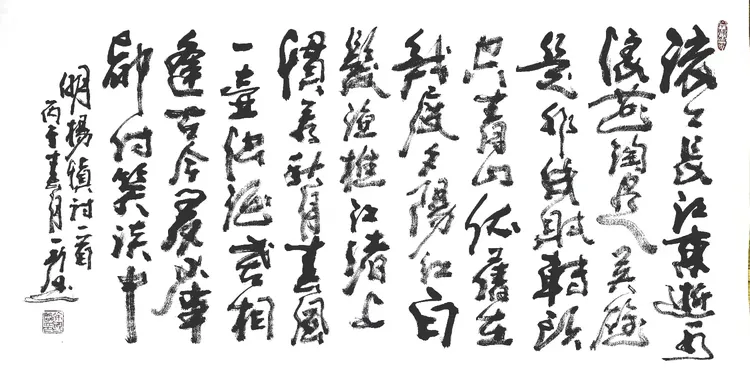 滚滚長江東逝水
浪花淘盡英雄
是非成敗轉頭
空青山依舊在
幾度夕陽紅白
髮漁樵江渚上
慣看秋月春風
一壺濁酒喜相
逢古今多少事
都付笑談中
明楊慎詞一首
丙午春月